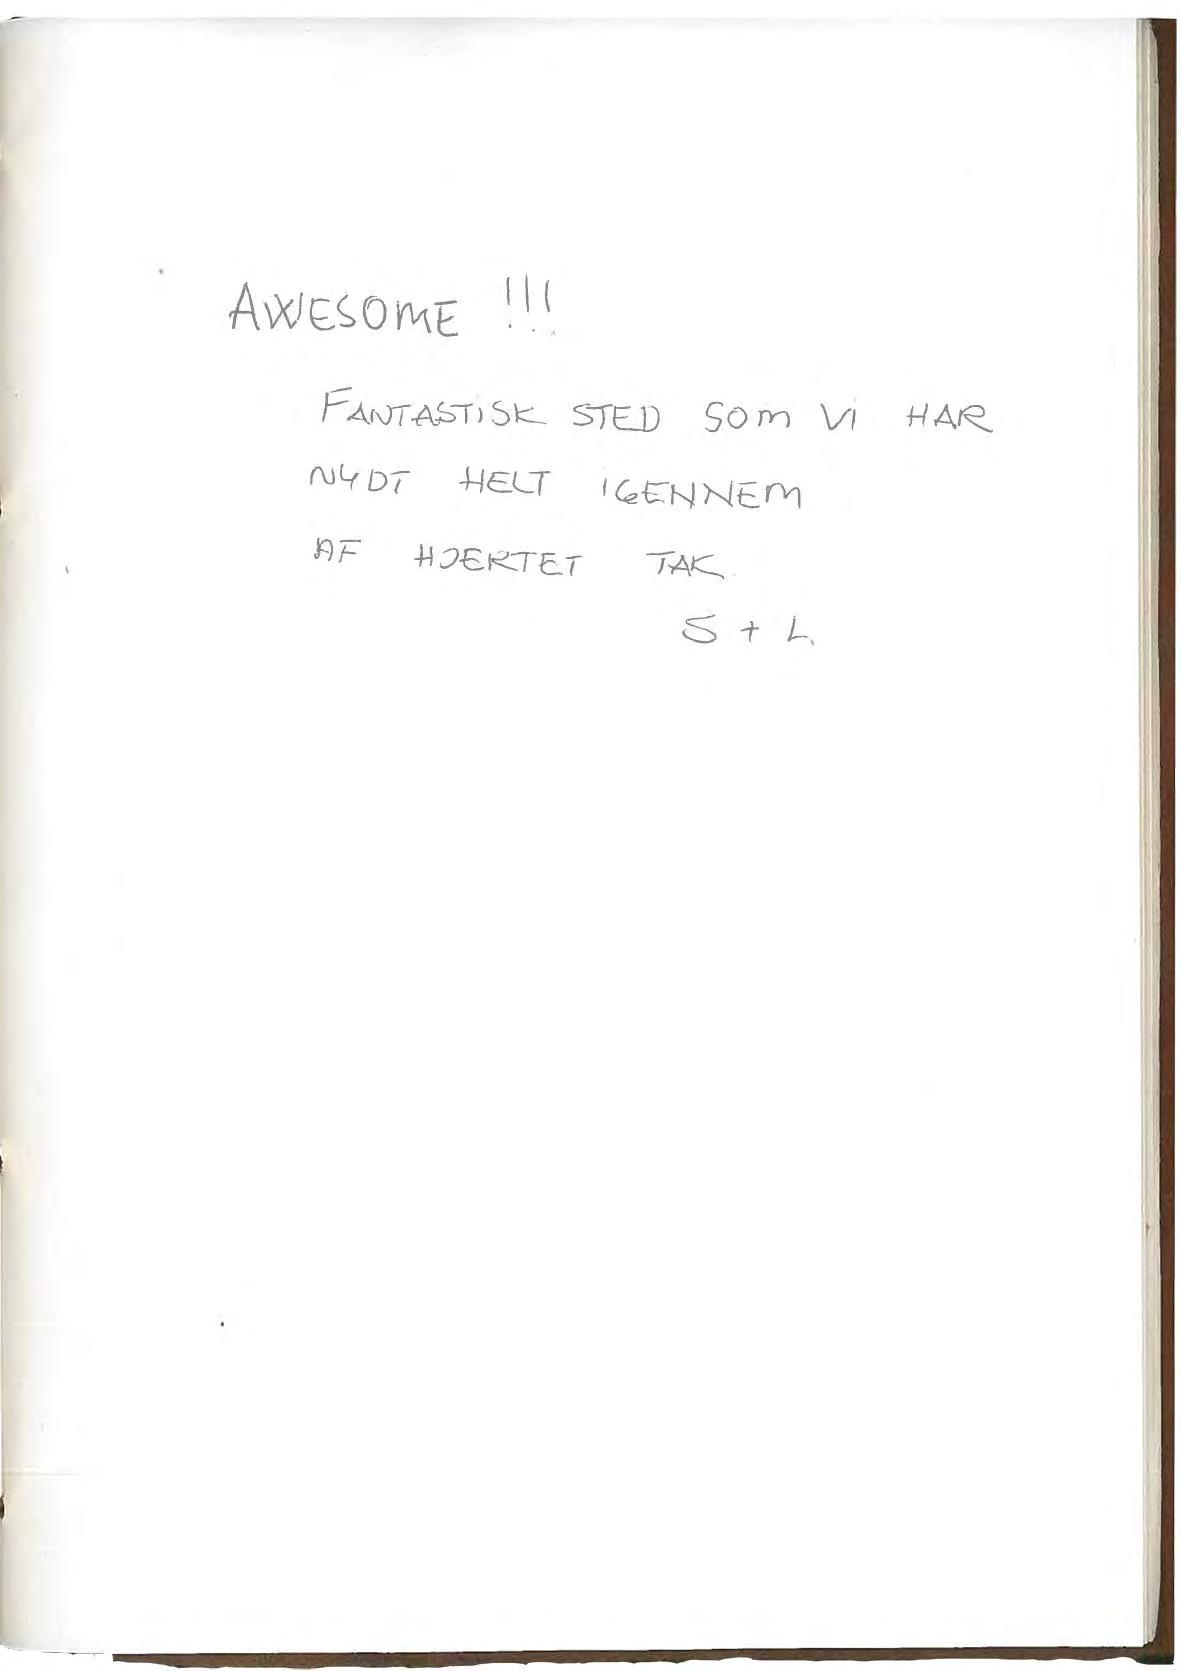 AWESOME !!!
FANTASTISK STED SOM VI HAR
NYDT HELT IGENNEM
AF HJERTET TAK.
S + L.